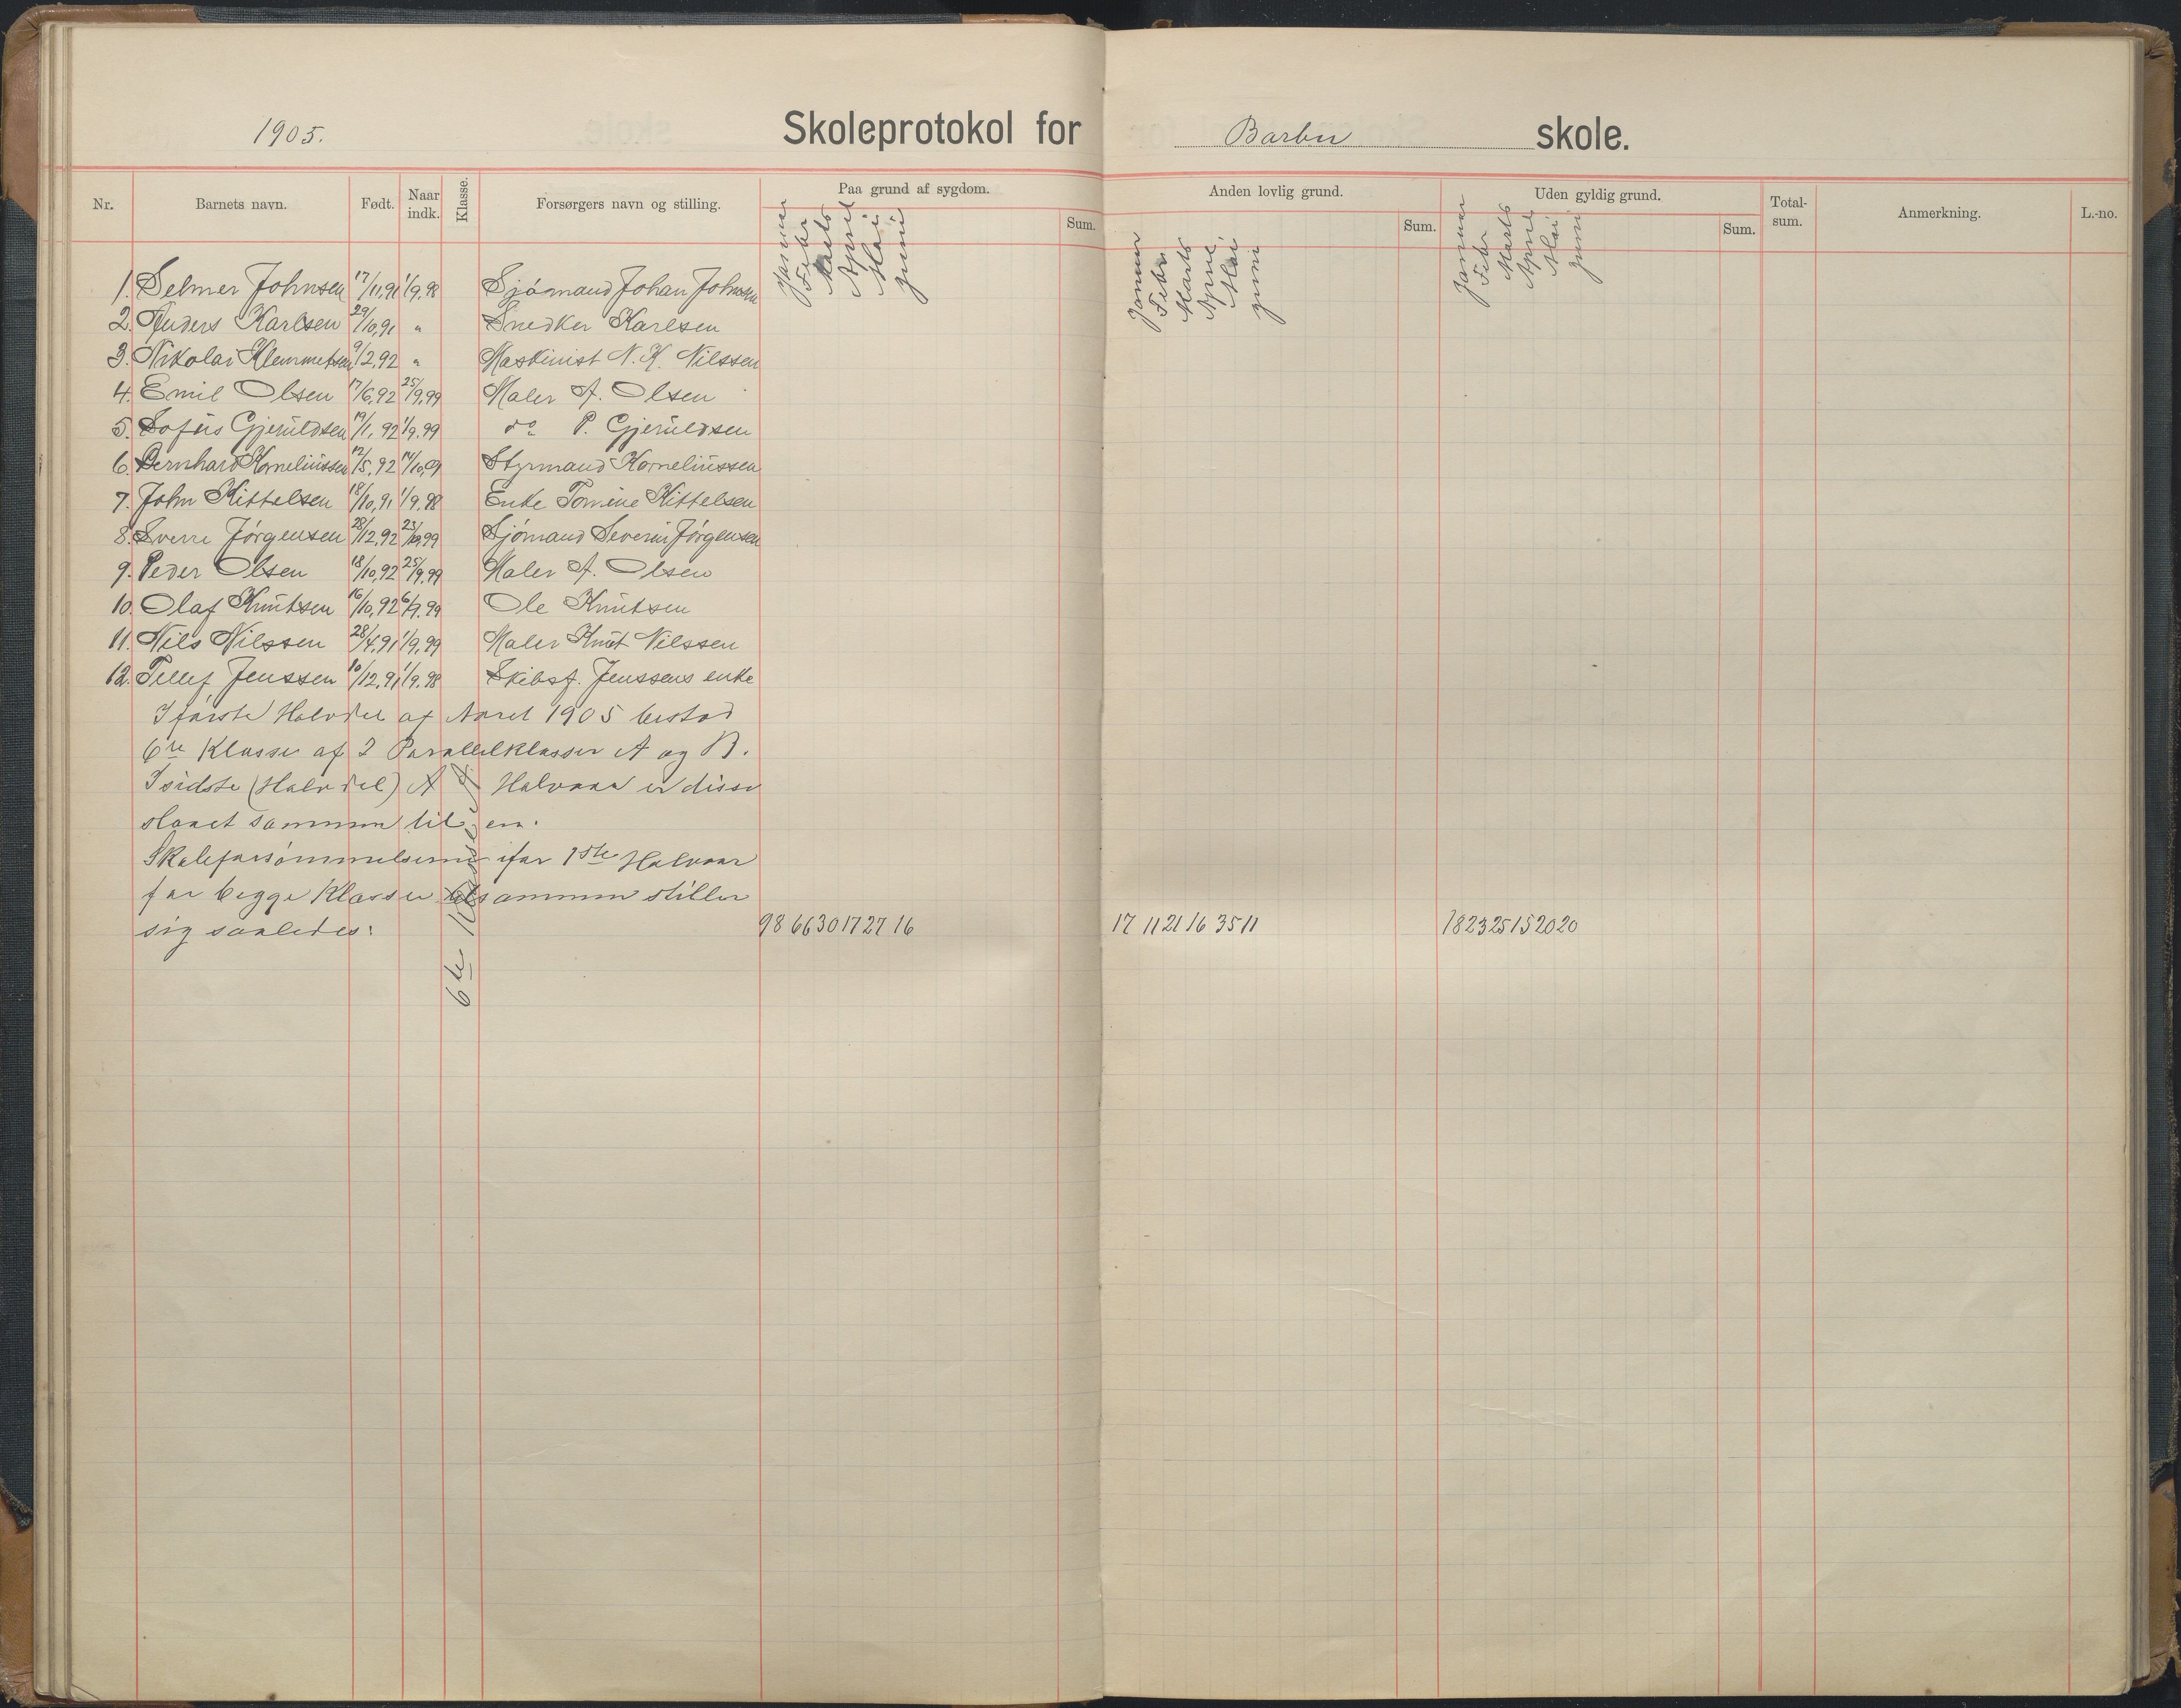 1905. Skoleprotokol for Barbu skole.
Nr. Barnets navn. Født. Naar indk. Klasse. Forsørgers navn og stilling. Paa grund af sygdom. Sum. Anden lovlig grund. Sum. Uden gyldig grund. Sum. Total-sum. Anmerkning. L.-no.
Januar Febr Marts April Mai Juni Januar Febr Marts April Mai Juni Januar Febr Marts April Mai Juni
1. Selmer Johnsen 17/11,91 1/9,98 Sjömand Johan Johnsen
2. Anders Karlsen 29/10,91 " Snedker Karlsen
3. Nikolai Klemmetsen 9/2,92 " Maskinist N. K. Nilssen
4. Emil Olsen 17/6,92 25/9,99 Maler A. Olsen
5. Sofus Gjeruldsen 19/1,92 1/9,99 do P. Gjeruldsen
6. Bernhard Korneliussen 12/5,92 14/10,09 Styrmand Korneliussen
7. John Kittelsen 18/10,91 1/9,98 Enke Tomine Kittelsen
8. Sverre Jörgensen 28/12,92 Sjömand Severin Jörgensen
9. Peder Olsen 18/10,92 25/9,99 Maler A. Olsen
10. Olaf Knutsen 16/10,92 6/9,99 Ole Knutsen
11. Nils Nilssen 28/4,91 1/9,99 Maler Knut Nilssen
12. Tellef Jenssen 10/12,91 1/9,98 Skibsf. Jenssens enke
I första Halvdel af Aaret 1905 bestod
6te Klasse af 2 Parallelklasser A og B.
I sidste (Halvdel) Halvaar er disse
slaaet sammen til en.
Skoleforsömmelserne ifor 1ste Halvaar
for begge Klasser tilsammen stiller
sig saaledes: 98 66 30 17 27 16 17 11 21 16 35 11 18 23 25 15 20 20
6te Klasse